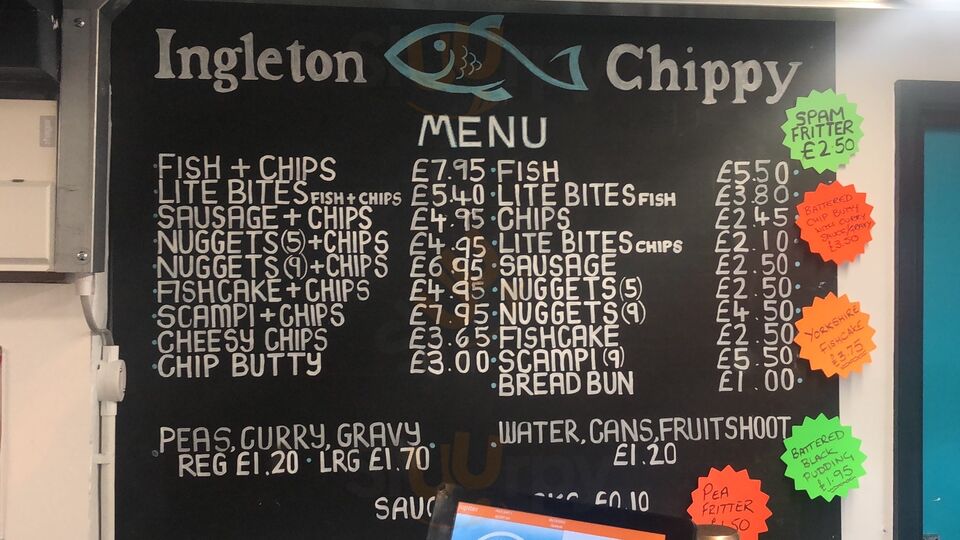 Ingleton Chippy
MENU
FISH + CHIPS £7.95
LITE BITES FISH + CHIPS £5.40
SAUSAGE + CHIPS £4.95
NUGGETS (5) + CHIPS £4.95
NUGGETS (9) + CHIPS £6.95
FISHCAKE + CHIPS £4.95
SCAMPI + CHIPS £7.95
CHEESY CHIPS £3.65
CHIP BUTTY £3.00
FISH £5.50
LITE BITES FISH £3.80
CHIPS £2.45
LITE BITES CHIPS £2.10
SAUSAGE £2.50
NUGGETS (5) £2.50
NUGGETS (9) £4.50
FISHCAKE £2.50
SCAMPI (9) £5.50
BREAD BUN £1.00
PEAS, CURRY, GRAVY
REG £1.20 · LRG £1.70
WATER, CANS, FRUITSHOOT
£1.20
£0.10
SPAM
FRITTER
£2.50
BATTERED
CHIP BUTTY
WITH CURRY
SAUCE/GRAVY
£3.50
YORKSHIRE
FISHCAKE
£3.75
BATTERED
BLACK
PUDDING
£1.95
PEA
FRITTER
£1.50